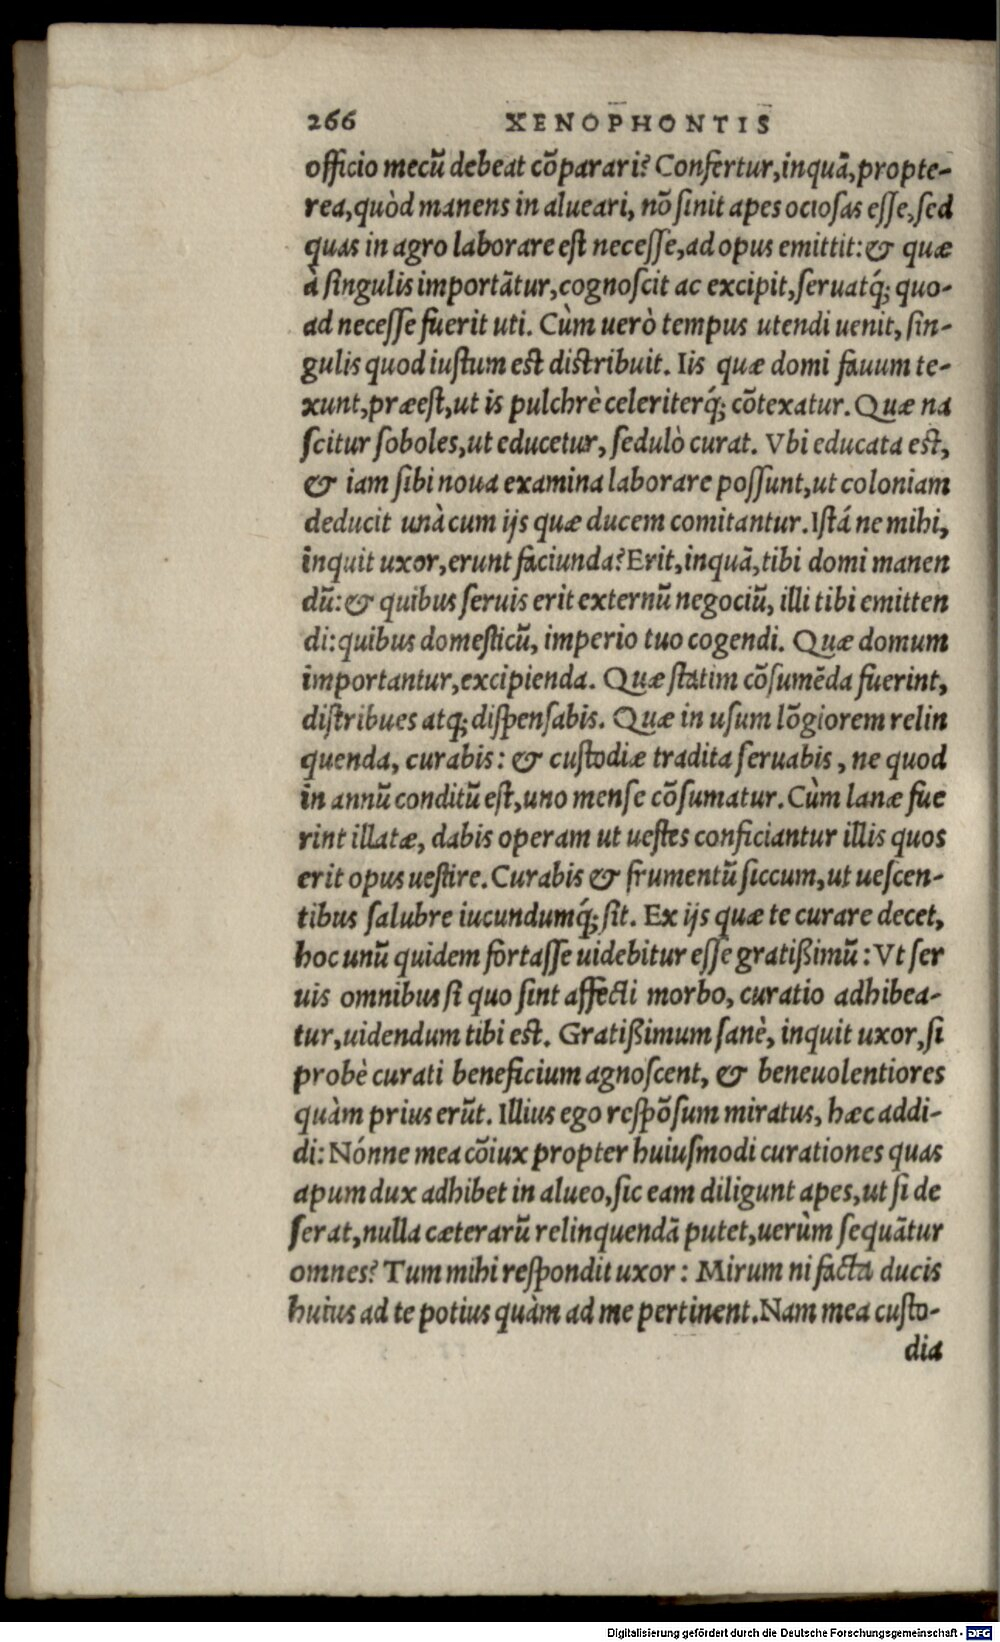 266 XENOPHONTIS
officio mecũ debeat cõparari? Confertur, inquã, propte-
rea, quòd manens in alueari, nõ sinit apes ociosas esse, sed
quas in agro laborare est necesse, ad opus emittit: & quæ
à singulis importãtur, cognoscit ac excipit, seruatq́; quo-
ad necesse fuerit uti. Cùm uerò tempus utendi uenit, sin-
gulis quod iustum est distribuit. Iis quæ domi fauum te-
xunt, præest, ut is pulchrè celeriterq́; cõtexatur. Quæ na
scitur soboles, ut educetur, sedulò curat. Vbi educata est,
& iam sibi noua examina laborare possunt, ut coloniam
deducit unà cum ijs quæ ducem comitantur. Istá ne mihi,
inquit uxor, erunt faciunda? Erit, inquã, tibi domi manen
dũ: & quibus seruis erit externũ negociũ, illi tibi emitten
di: quibus domesticũ, imperio tuo cogendi. Quæ domum
importantur, excipienda. Quæ statim cõsumẽda fuerint,
distribues atq; dispensabis. Quæ in usum lõgiorem relin
quenda, curabis: & custodiæ tradita seruabis, ne quod
in annũ conditũ est, uno mense cõsumatur. Cùm lanæ fue
rint illatæ, dabis operam ut uestes conficiantur illis quos
erit opus uestire. Curabis & frumentũ siccum, ut uescen-
tibus salubre iucundumq́; sit. Ex ijs quæ te curare decet,
hoc unũ quidem fortasse uidebitur esse gratißimũ: Vt ser
uis omnibus si quo sint affecti morbo, curatio adhibea-
tur, uidendum tibi est. Gratißimum sanè, inquit uxor, si
probè curati beneficium agnoscent, & beneuolentiores
quàm prius erũt. Illius ego respõsum miratus, hæc addi-
di: Nónne mea cõiux propter huiusmodi curationes quas
apum dux adhibet in alueo, sic eam diligunt apes, ut si de
serat, nulla cæterarũ relinquendã putet, uerùm sequãtur
omnes? Tum mihi respondit uxor: Mirum ni facta ducis
huius ad te potius quàm ad me pertinent. Nam mea custo-
dia
Digitalisierung gefördert durch die Deutsche Forschungsgemeinschaft - DFG